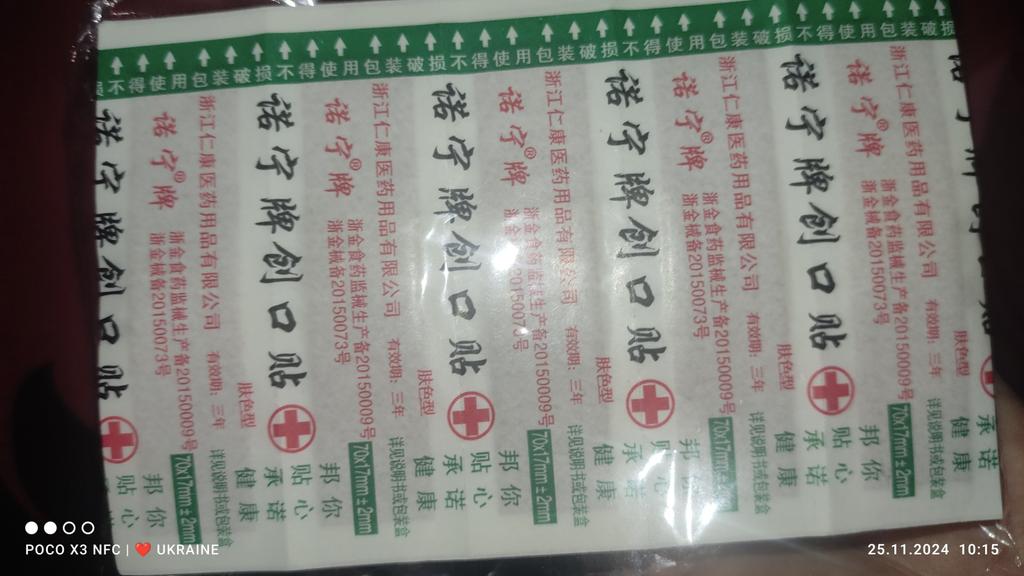 包装破损不得使用包装破损不得使用包装破损不得使用包装破损不得使用包装破损
诺字牌创口贴
诺字®牌
浙江仁康医药用品有限公司
浙金食药监械生产备20150009号
浙金械备20150073号
有效期：三年
肤色型
70x17mm±2mm
详见说明书或包装盒
邦你
贴心
承诺
健康
诺字牌创口贴
诺字®牌
浙江仁康医药用品有限公司
浙金食药监械生产备20150009号
浙金械备20150073号
有效期：三年
肤色型
70x17mm±2mm
详见说明书或包装盒
邦你
贴心
承诺
健康
诺字牌创口贴
诺字®牌
浙江仁康医药用品有限公司
浙金食药监械生产备20150009号
浙金械备20150073号
有效期：三年
肤色型
70x17mm±2mm
详见说明书或包装盒
邦你
贴心
承诺
健康
诺字牌创口贴
诺字®牌
浙江仁康医药用品有限公司
浙金食药监械生产备20150009号
浙金械备20150073号
有效期：三年
肤色型
70x17mm±2mm
详见说明书或包装盒
邦你
贴心
承诺
健康
诺字牌创口贴
诺字®牌
浙江仁康医药用品有限公司
浙金食药监械生产备20150009号
浙金械备20150073号
有效期：三年
肤色型
70x17mm±2mm
详见说明书或包装盒
邦你
贴心
承诺
健康
POCO X3 NFC | ❤️ UKRAINE
25.11.2024 10:15